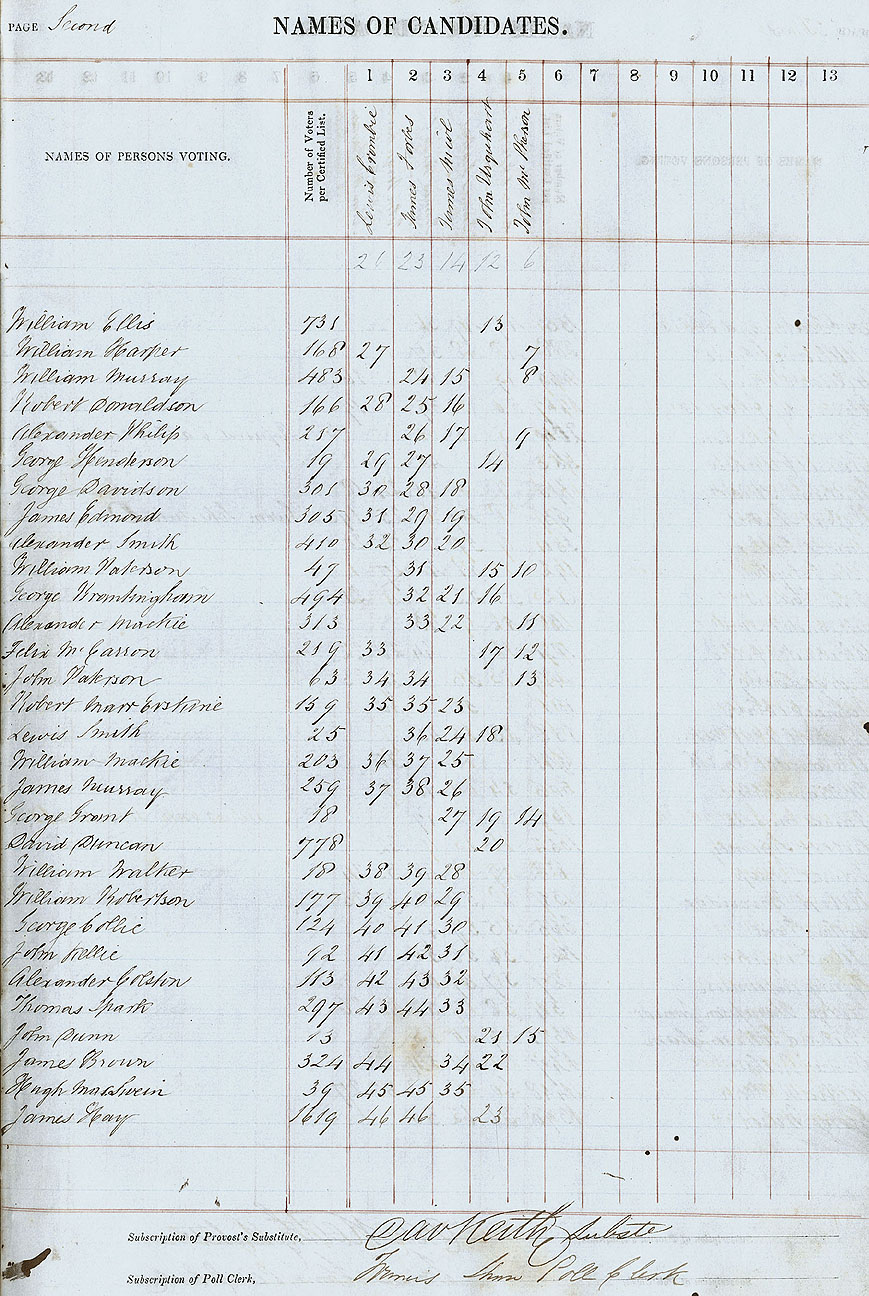 PAGE Second
NAMES OF CANDIDATES.
1 2 3 4 5 6 7 8 9 10 11 12 13
NAMES OF PERSONS VOTING.
Number of Voters per Certified List.
Lewis Crombie
James Forbes
James Miel
John Urquhart
John McPherson
26 23 14 12 6
William Ellis 731 13
William Harper 168 27 7
William Murray 483 24 15 8
Robert Donaldson 166 28 25 16
Alexander Philip 257 26 17 9
George Henderson 19 29 27 14
George Davidson 301 30 28 18
James Edmond 305 31 29 19
Alexander Smith 410 32 30 20
William Paterson 47 31 15 10
George 494 32 21 16
Alexander Mackie 313 33 22 11
Felix McCasson 219 33 17 12
John Paterson 63 34 34 13
Robert Marr Erskine 159 35 35 23
Lewis Smith 25 36 24 18
William Mackie 203 36 37 25
James Murray 259 37 38 26
George Grant 18 27 19 14
David Duncan 778 20
William Walker 18 38 39 28
William Robertson 177 39 40 29
George Collie 124 40 41 30
John Kellie 92 41 42 31
Alexander Colston 113 42 43 32
Thomas Spark 297 43 44 33
John Dunn 13 21 15
James Brown 324 44 34 22
Hugh MacSwein 39 45 45 35
James Hay 1619 46 46 23
Subscription of Provost's Substitute, Dav Keith, Subste
Subscription of Poll Clerk, Francis Poll Clerk